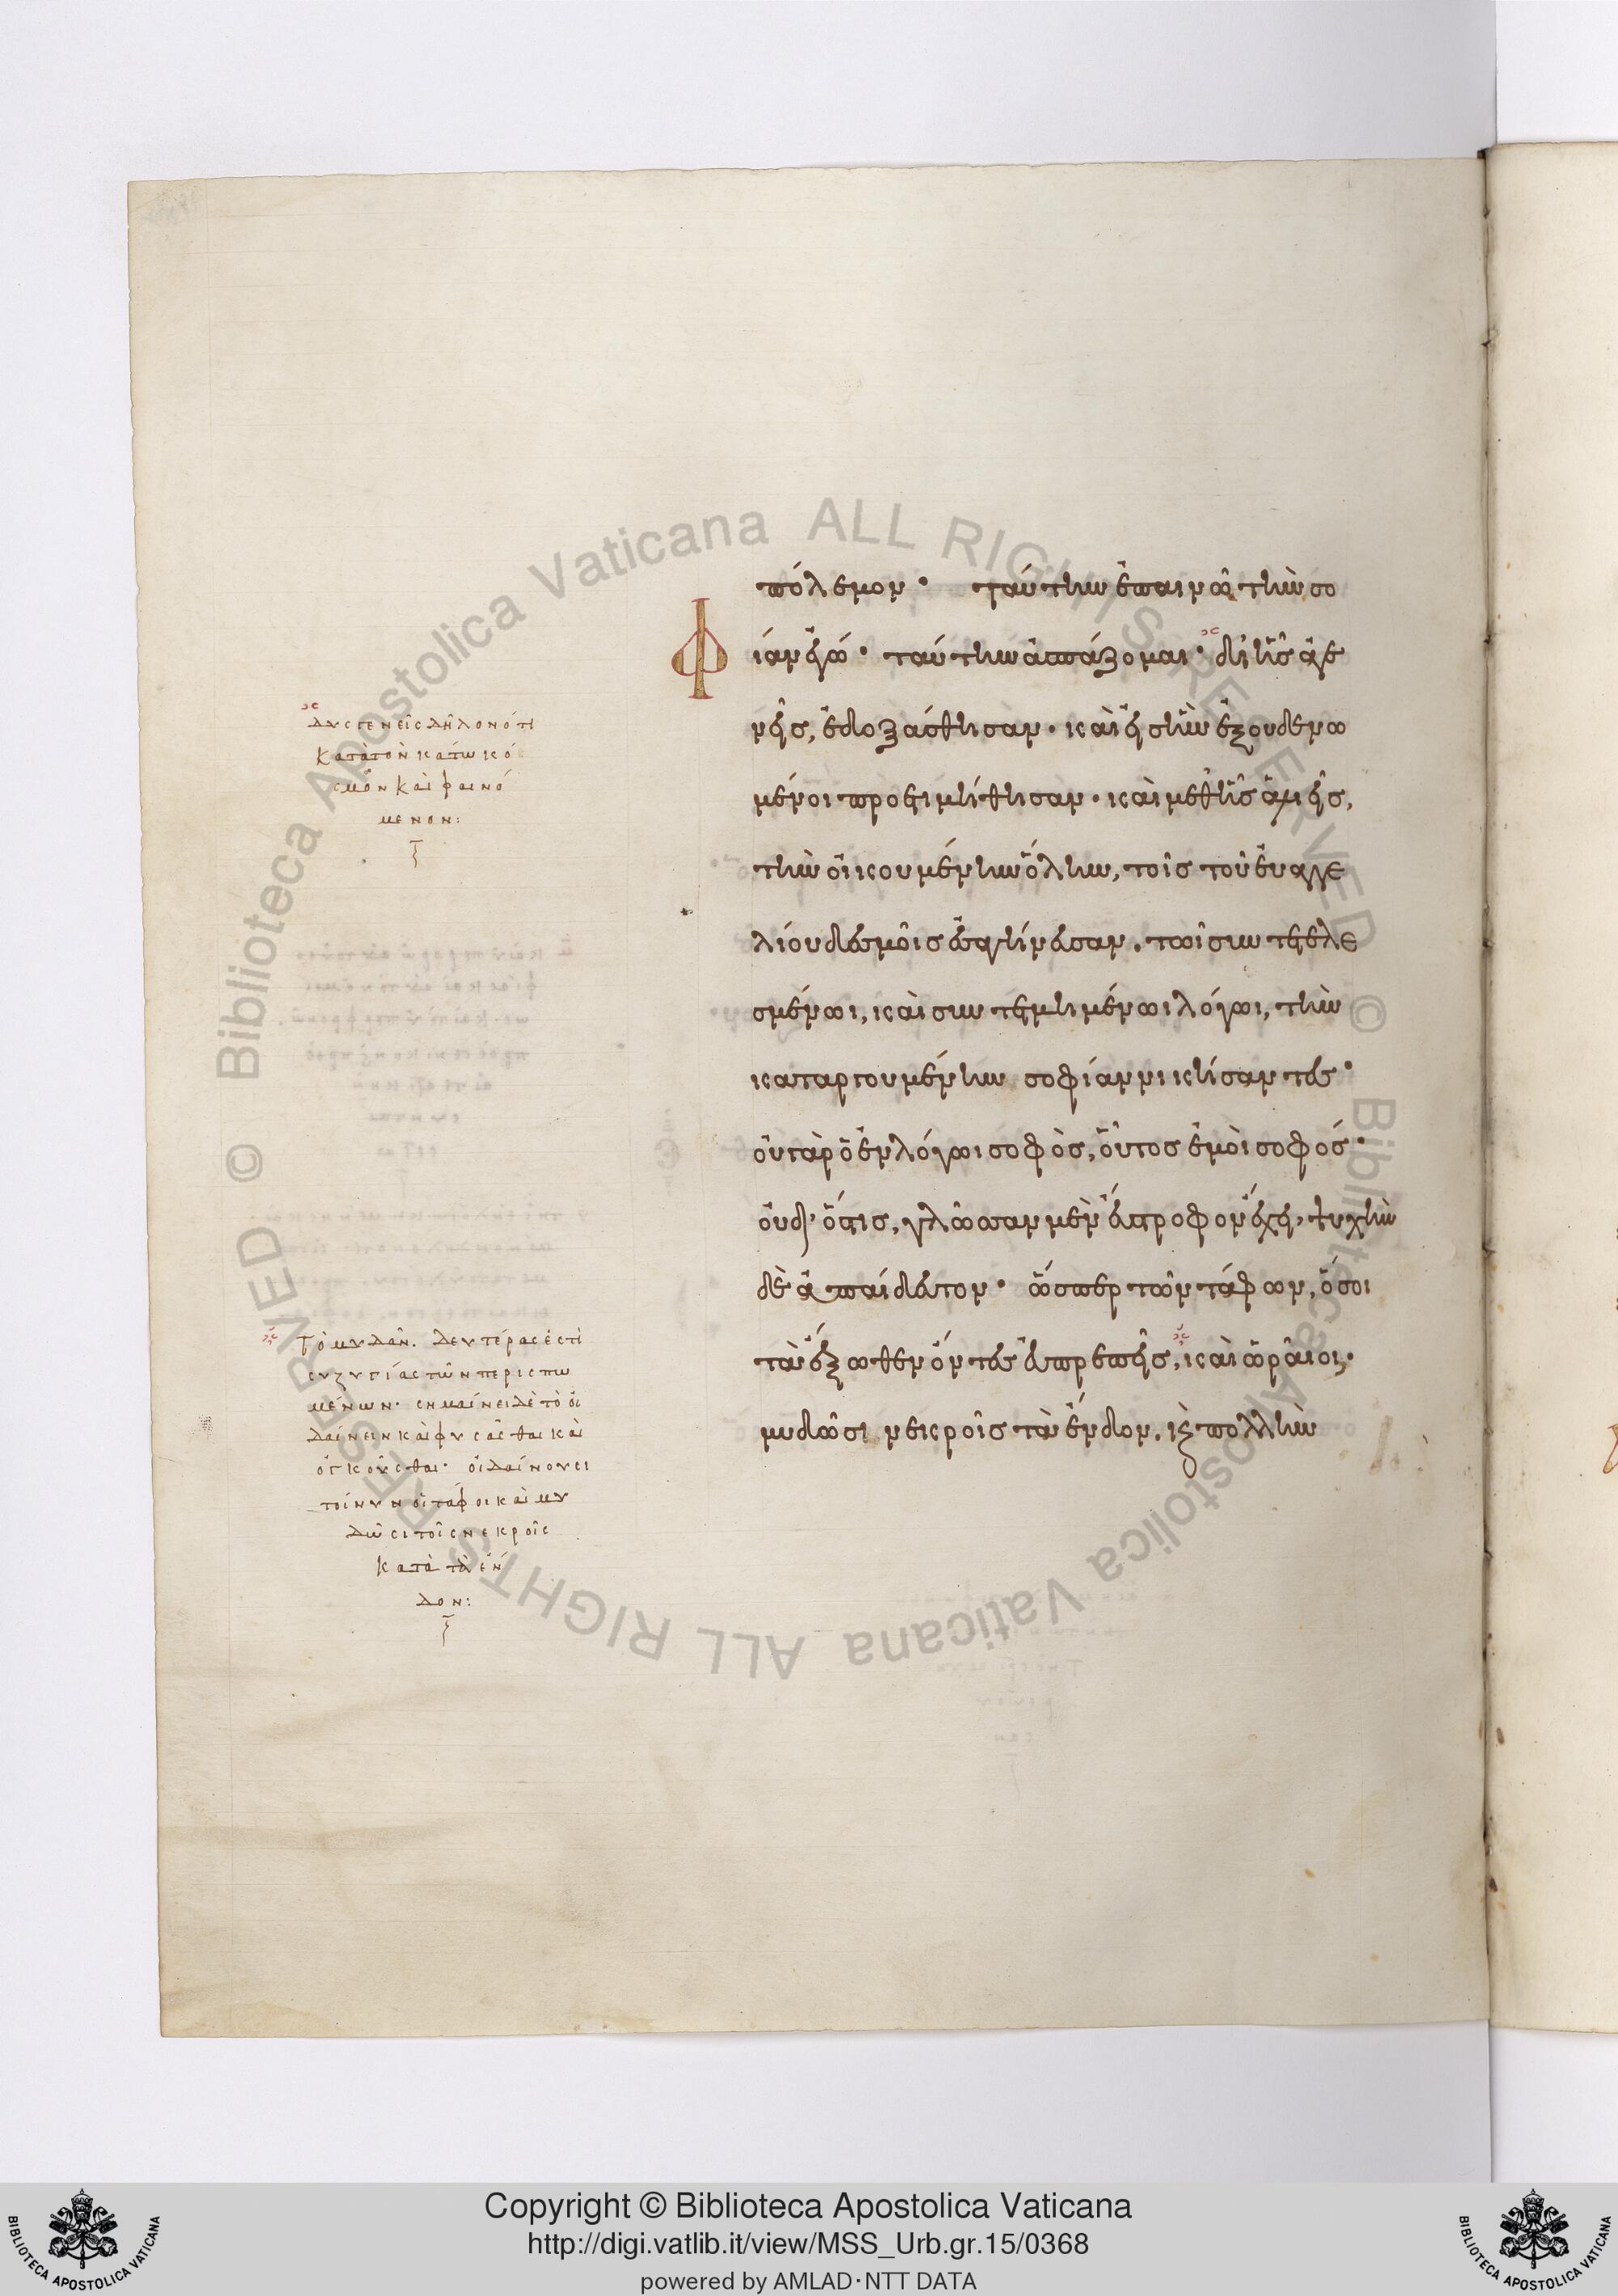 πόλεμον· ταύτην ἐπαινῶ τὴν σο
Φίαν ἐγώ· ταύτην ἀσπάζομαι· δι ἧς ἀγε
νεῖς, ἐδοξάσθησαν· καὶ εἰς τὴν ἐξουδενω
μένοι προετιμήθησαν· καὶ μεθ ἧς ἁλιεῖς,
τὴν οἰκουμένην ὅλην, τοῖς τοῦ εὐαγγε
λίου δεσμοῖς ἐσαγήνευσαν, τῶι συντετελε
σμένωι, καὶ συντετμημένωι λόγωι, τὴν
καταργουμένην σοφίαν νικήσαντες·
οὐ γὰρ ὁ ἐν λόγωι σοφὸς, οὗτος ἐμοὶ σοφός·
οὐδ' ὅστις, γλῶσσαν μὲν εὔστροφον ἔχει, ψυχὴν
δὲ ἀπαίδευτον· ὥσπερ τῶν τάφων, ὅσοι
τὰ ἔξωθεν ὄντες εὐπρεπεῖς, καὶ ὡραῖοι,
μυδῶσι νεκροῖς τὰ ἔνδον, κ πολλὴν
δυσγενεῖς δηλονότι
κατὰ τὸν κάτω κό
σμον καὶ φαινό
μενον:
Τὸ μυδᾶν. δευτέρας ἐστὶ
συζυγίας τῶν περισπω
μένων· σημαίνει δὲ τὸ οἰ
δαίνειν καὶ φυσᾶσθαι καὶ
ὀγκοῦσθαι· οἰδαίνουσι
τοίνυν οἱ τάφοι καὶ μυ
δῶσι τοῖς νεκροῖς
κατὰ τὰ ἔν
δον:
Copyright © Biblioteca Apostolica Vaticana
http://digi.vatlib.it/view/MSS_Urb.gr.15/0368
powered by AMLAD·NTT DATA
BIBLIOTECA APOSTOLICA VATICANA
BIBLIOTECA APOSTOLICA VATICANA
© Biblioteca Apostolica Vaticana ALL RIGHTS RESERVED
© Biblioteca Apostolica Vaticana ALL RIGHTS RESERVED